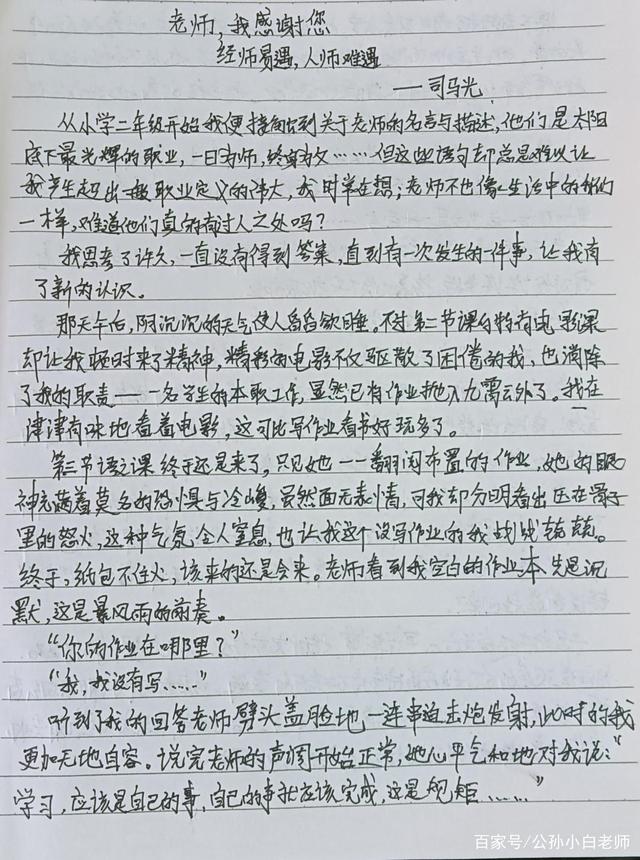 老师,我感谢您
经师易遇,人师难遇
——司马光
从小学二年级开始我便接触到关于老师的名言与描述,他们是太阳
底下最光辉的职业,一日为师,终身为父……但这些语句却总是难以让
我产生超出一般职业定义的伟大,我时常在想;老师不也像生活中的我们
一样,难道他们真的有过人之处吗?
我思考了许久,一直没有得到答案,直到有一次发生的一件事,让我有
了新的认识。
那天午后,阴沉沉的天气使人昏昏欲睡。不过第二节课的特有电影课
却让我顿时来了精神,精彩的电影不仅驱散了困倦的我,也消除
了我的职责——一名学生的本职工作,显然已将作业抛入九霄云外了。我在
津津有味地看着电影,这可比写作业看书好玩多了。
第三节语文课终于还是来了,只见她一一翻阅布置的作业,她的眼
神充满着莫名的恐惧与冷峻,虽然面无表情,可我却分明看出压在骨子
里的怒火,这种气氛令人窒息,也让我这个没写作业的我战战兢兢。
终于,纸包不住火,该来的还是会来。老师看到我空白的作业本先是沉
默,这是暴风雨的前奏。
“你的作业在哪里?”
“我,我没有写……”
听到了我的回答老师劈头盖脸地一连串迫击炮发射,此时的我
更加无地自容。说完老师的声调开始正常,她心平气和地对我说:“
学习,应该是自己的事,自己的事就应该完成,这是规矩……”
百家号/公孙小白老师